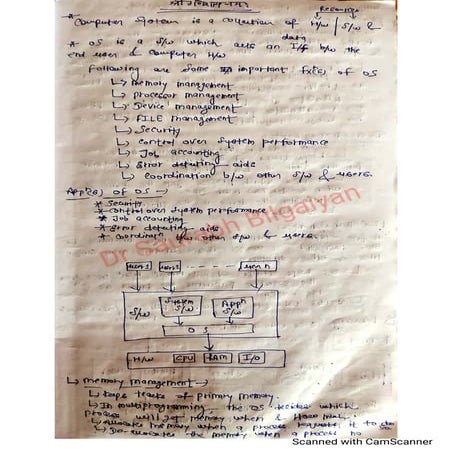 Resources
* Computer System is a collection of H/w | S/w & data
* OS is a S/w which acts an I/f b/w the
end user & computer H/w
Following are some important fx(s) of OS
↳ memory management
↳ processor management
↳ Device management
↳ FILE management
↳ Security
↳ control over system performance
↳ Job accounting
↳ Error detecting aids
↳ coordination b/w other S/w & users.
App(s) of OS →
* Security
* control over system performance
* Job accounting
* Error detecting aids
* coordinatn b/w other s/w & users
user1 user2 user n
S/w System S/w Appn S/w
O S
H/w CPU RAM I/O
↳ memory management →
↳ keeps tracks of primary memory.
↳ In multiprogramming, the OS decides which
process will get memory when &
↳ allocates memory when a process requests it to do so
↳ De-allocates the memory when a process no
Bilgaiyan
Scanned with CamScanner